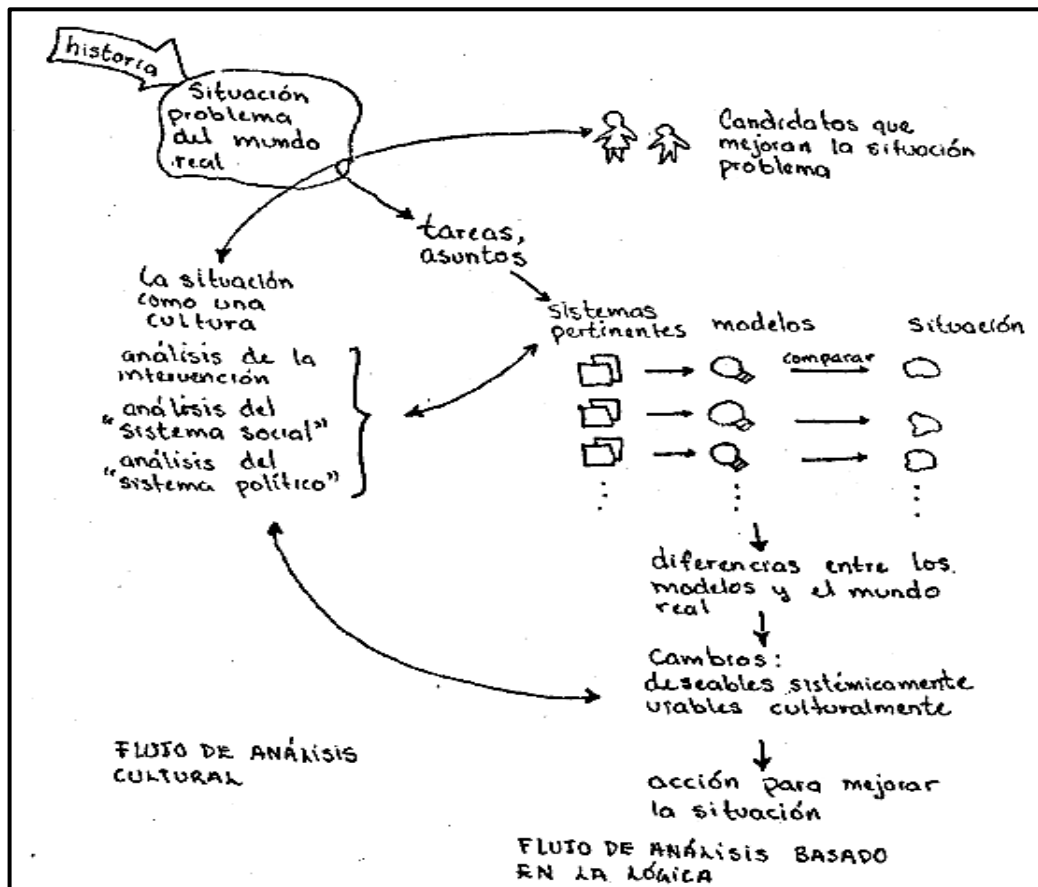 historia
Situación
problema
del mundo
real
Candidatos que
mejoran la situación
problema
tareas,
asuntos
La situación
como una
cultura
análisis de la
intervención
análisis del
"sistema social"
análisis del
"sistema político"
sistemas
pertinentes
modelos
situación
comparar
diferencias entre los
modelos y el mundo
real
Cambios:
deseables sistémicamente
viables culturalmente
acción para mejorar
la situación
FLUJO DE ANÁLISIS
CULTURAL
FLUJO DE ANÁLISIS BASADO
EN LA LÓGICA